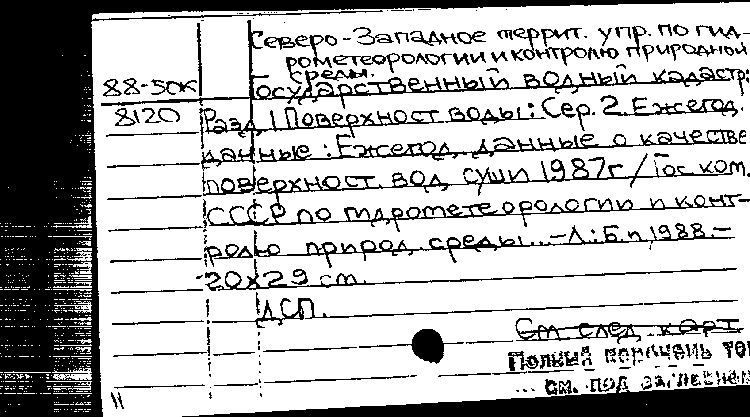 Северо-Западное террит. упр. по гид-
рометеорологии и контролю природной
среды.
88-50К Государственный водный кадастр:
8120 Разд 1 Поверхност воды: Сер. 2. Ежегод.
данные: Ежегод. данные о качестве
поверхност. вод суши 1987г / Гос ком.
СССР по гидрометеорологии и конт-
ролю природ. среды. – Л.: Б.и, 1988. –
20х29 см.
ДСП.
См след. карт
Полный перечень
... см. под
11